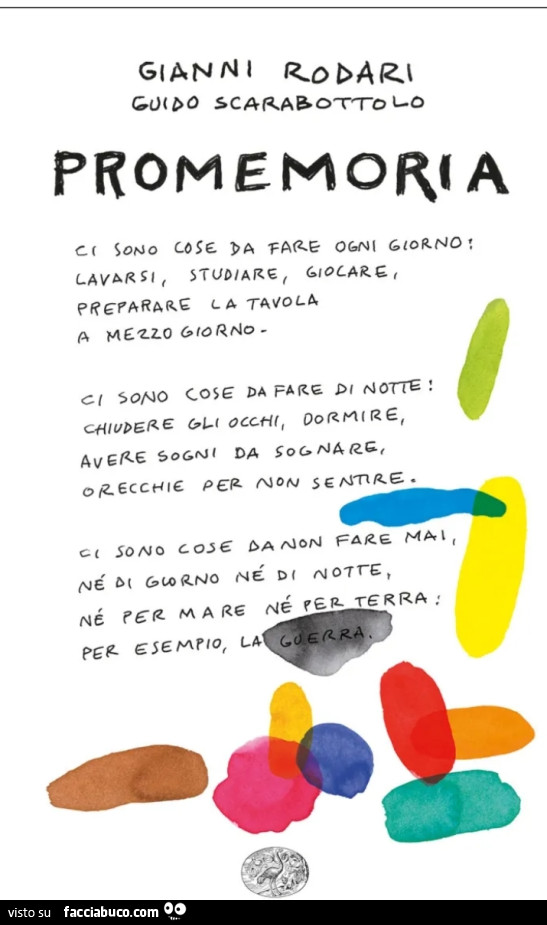 GIANNI RODARI
GUIDO SCARABOTTOLO
PROMEMORIA
CI SONO COSE DA FARE OGNI GIORNO:
LAVARSI, STUDIARE, GIOCARE,
PREPARARE LA TAVOLA
A MEZZOGIORNO.
CI SONO COSE DA FARE DI NOTTE:
CHIUDERE GLI OCCHI, DORMIRE,
AVERE SOGNI DA SOGNARE,
ORECCHIE PER NON SENTIRE.
CI SONO COSE DA NON FARE MAI,
NÉ DI GIORNO NÉ DI NOTTE,
NÉ PER MARE NÉ PER TERRA:
PER ESEMPIO, LA GUERRA.
visto su facciabuco.com